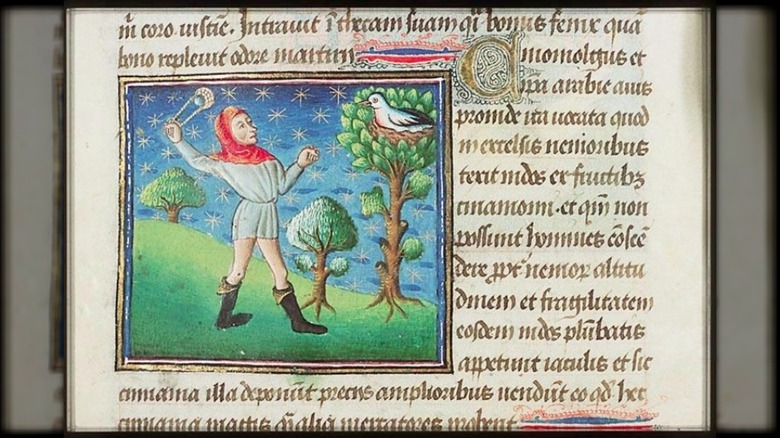 coro. Intrauit ī thecam suam bonus fenix qua
bono repleuit odore martiri
Cinomolgus et
ipa arabie auis
proinde ita uocata quod
in excelsis nemoribus
texit nidos ex fructibꝫ
cinamomi. et qm̄ non
possunt homines cōsce
dere ꝓpt' nemor altitu
dinem et fragilitatem
eosdem nidos plūbatis
appetunt iaculis et sic
cinnama illa deponūt precijs amplioribus uendūt eo qd̄ hec
cinnama magis alia mercatores probent